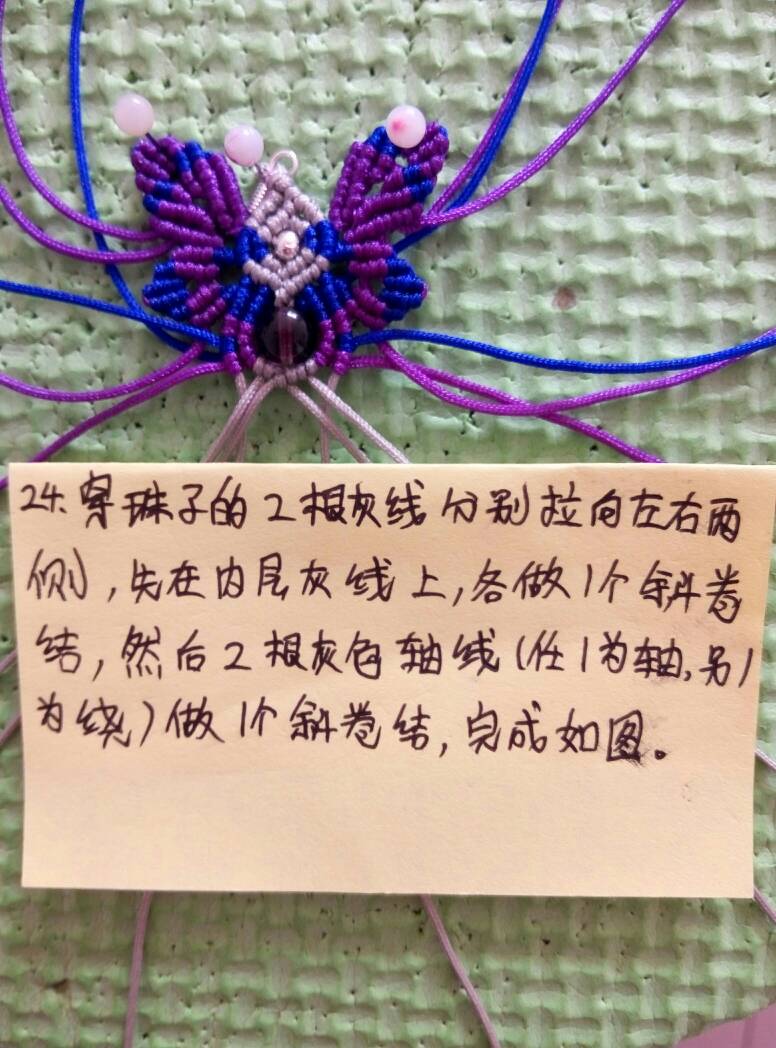 24.穿珠子的2根灰线分别拉向左右两
侧,先在内层灰线上,各做1个斜卷
结,然后2根灰色轴线(任1为轴,另1
为绕)做1个斜卷结,完成如图。